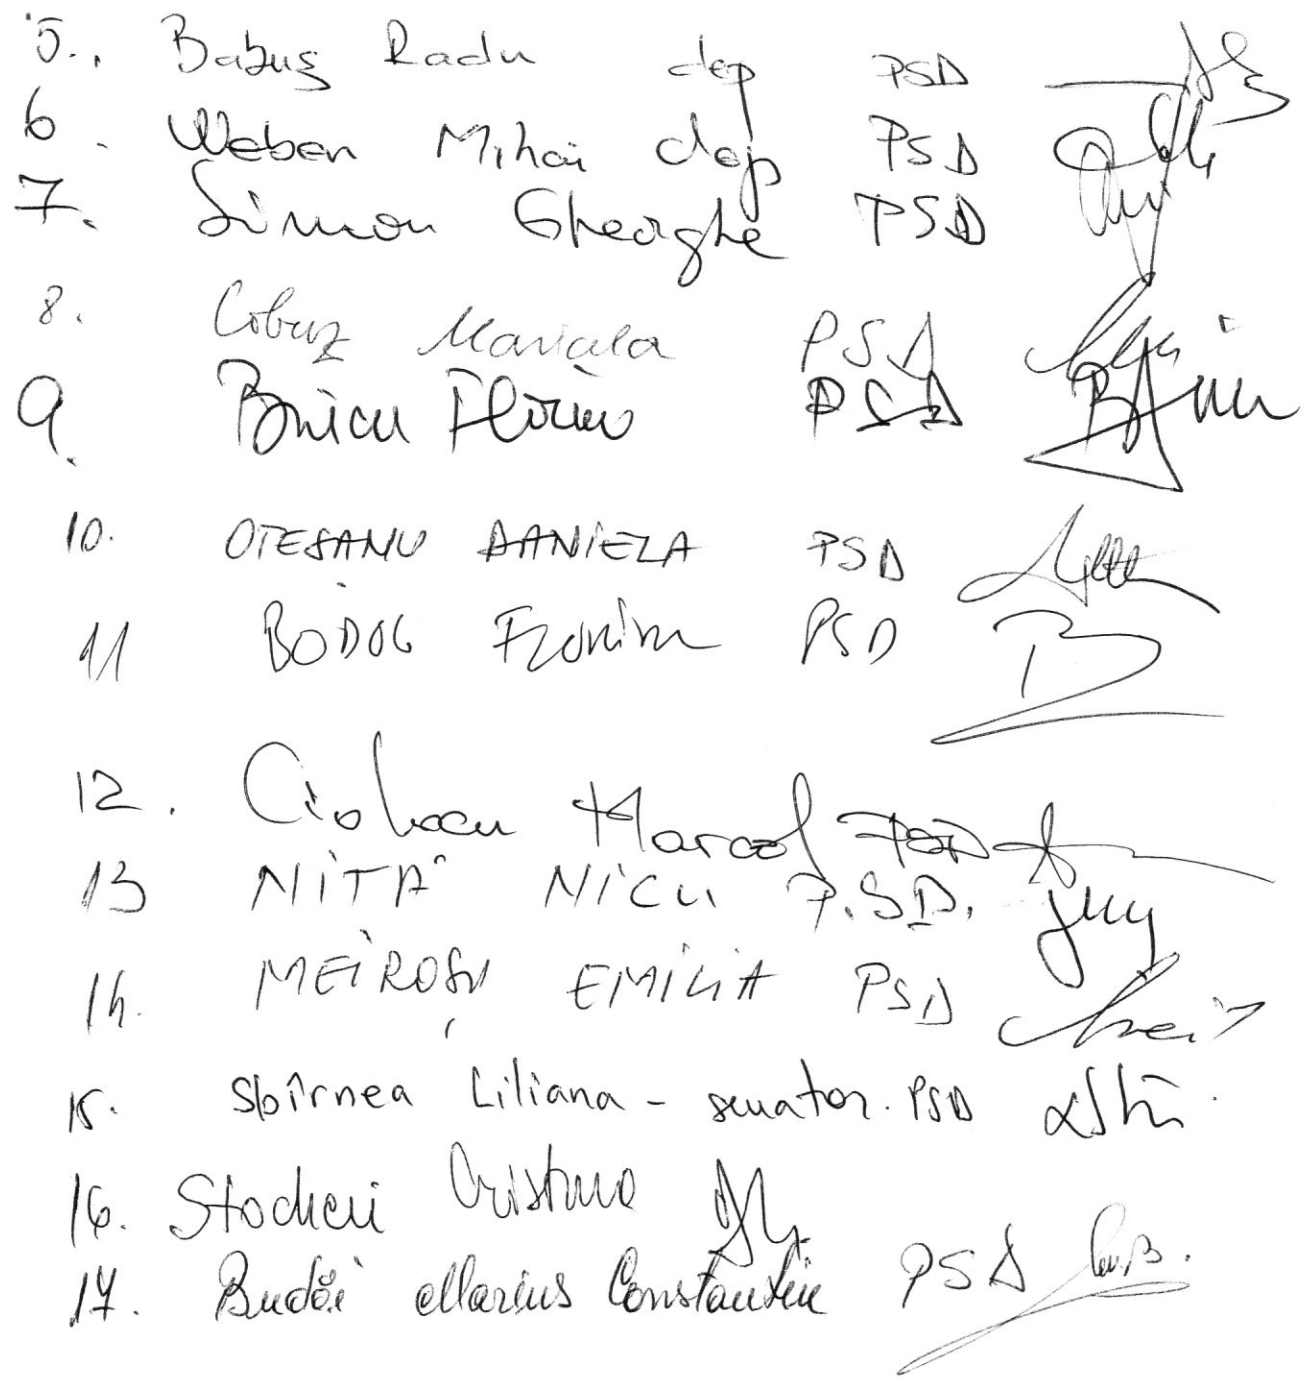 5., Babuș Radu dep PSD
6. Weber Mihai dep PSD
7. Simon Gheorghe PSD
8. Cobuz Maricela PSD
9. Bricu Florin PSD
10. OTESANU DANIELA PSD
11 BODOG Florian PSD
12. Ciolacu Marcel PSD
13 NIȚĂ NICU P.S.D.
14. MEIROȘU EMILIA PSD
15. Sbîrnea Liliana - senator. PSD
16. Stocheci Cristina
17. Budăi Marius Constantin PSD